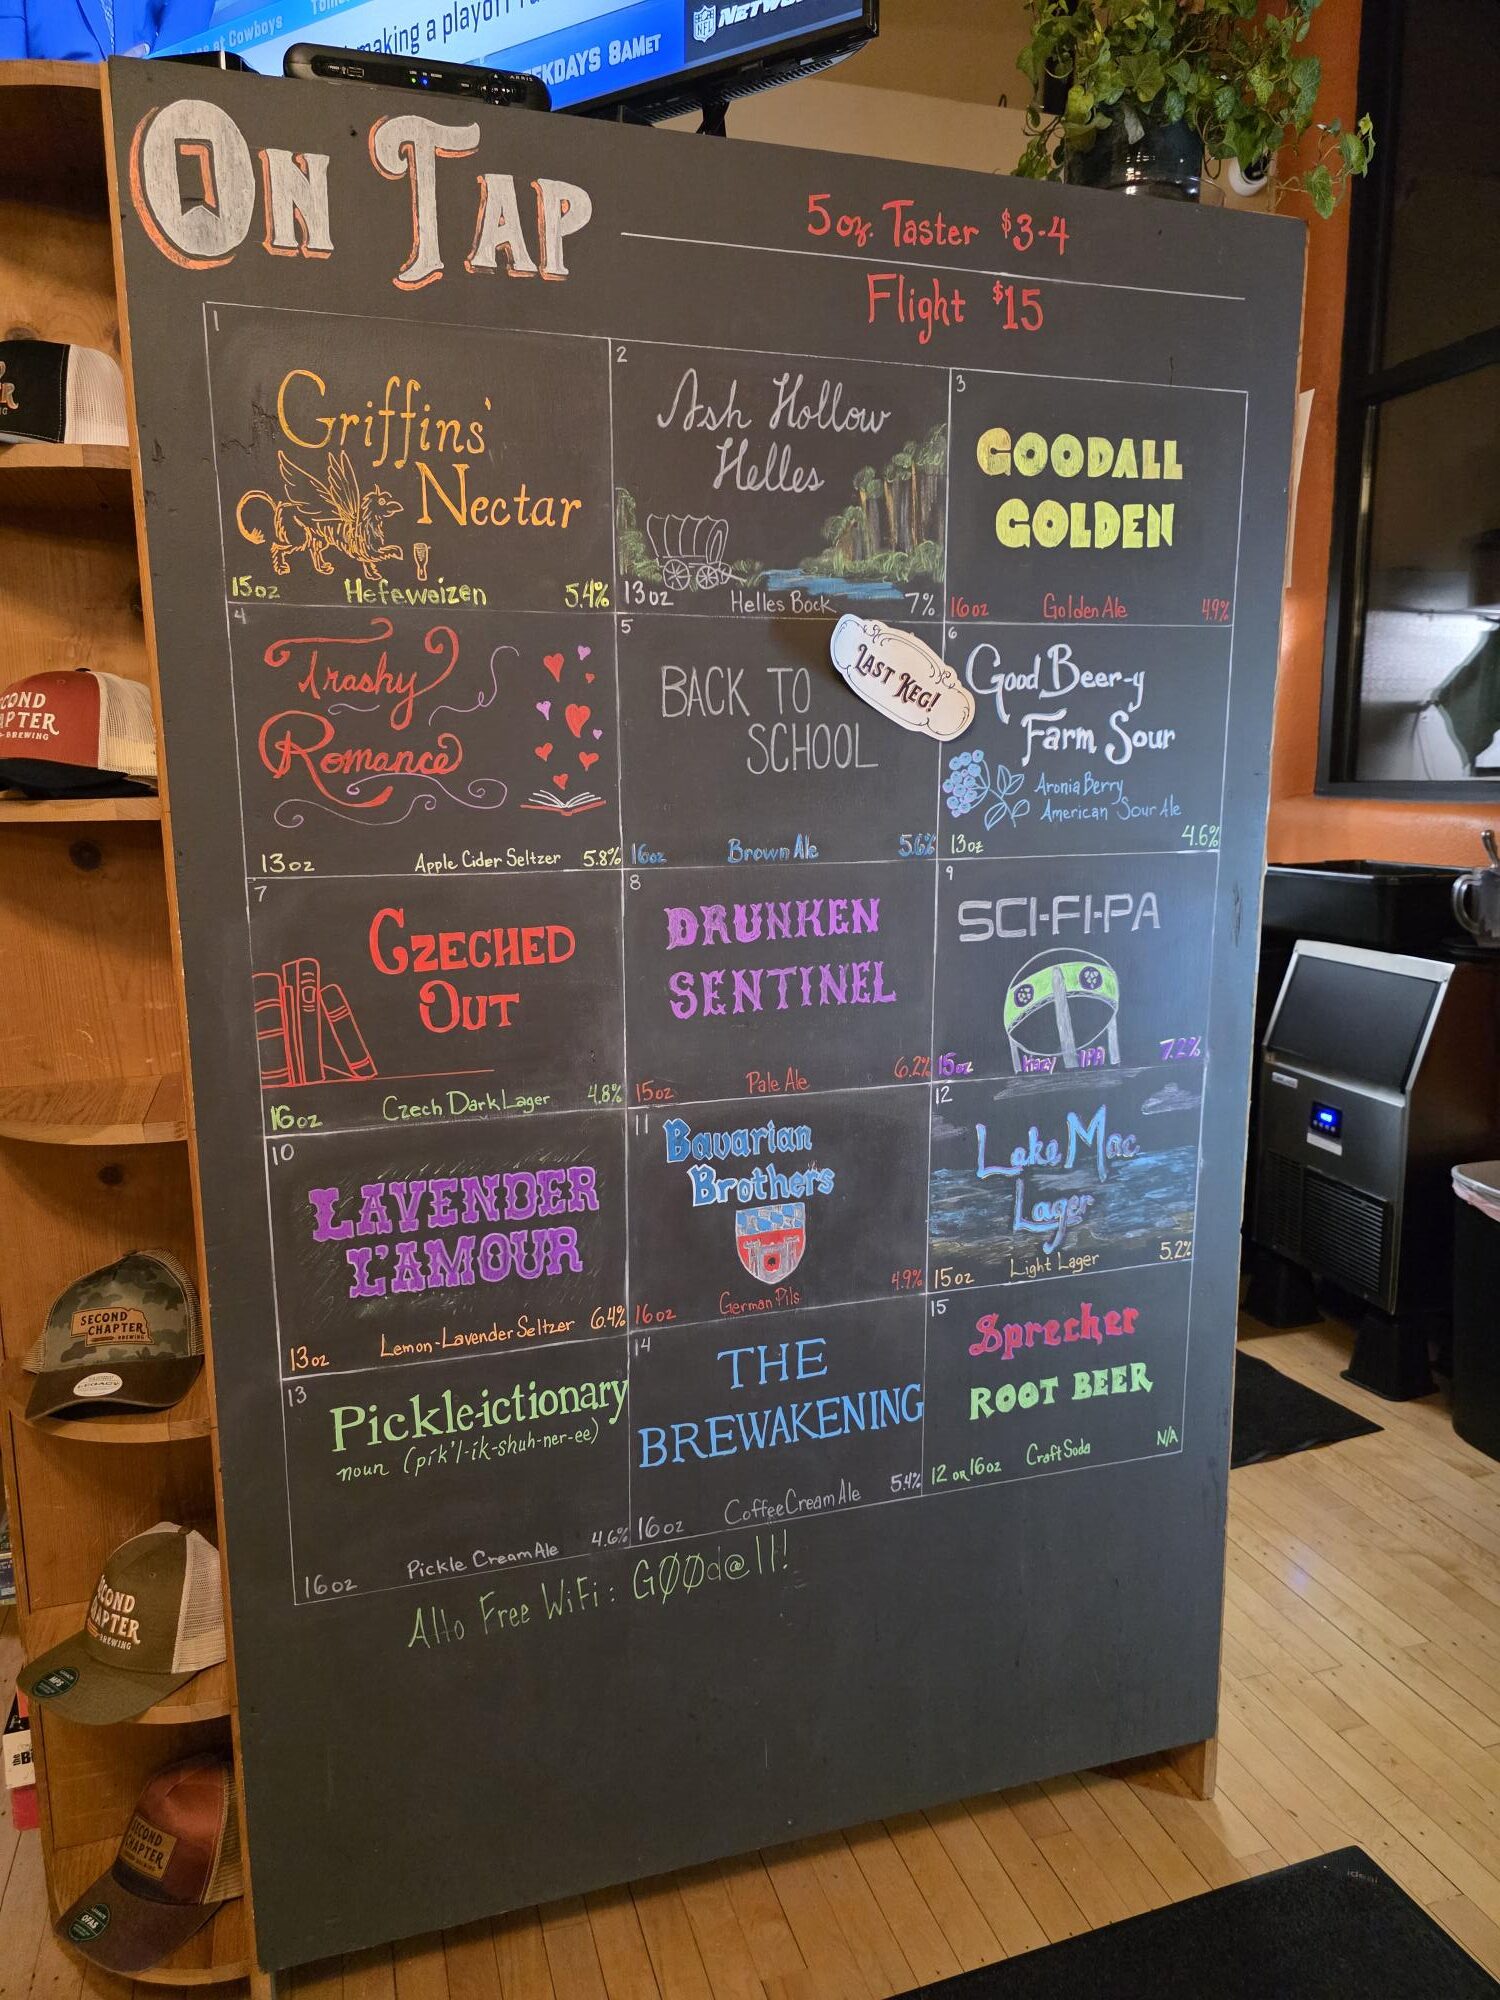 at Cowboys
making a playoff
WEEKDAYS 8AM ET
NFL
NETWORK
ON TAP
5 oz. Taster $3-4
Flight $15
1
Griffins'
Nectar
15oz Hefeweizen 5.4%
2
Ash Hollow
Helles
13oz Helles Bock 7%
3
GOODALL
GOLDEN
16oz Golden Ale 4.9%
4
Trashy
Romance
13oz Apple Cider Seltzer 5.8%
5
BACK TO
SCHOOL
LAST KEG!
16oz Brown Ale 5.6%
6
Good Beer-y
Farm Sour
Aronia Berry
American Sour Ale
13oz 4.6%
7
CZECHED
OUT
16oz Czech Dark Lager 4.8%
8
DRUNKEN
SENTINEL
15oz Pale Ale 6.2%
9
SCI-FI-PA
15oz Hazy IPA 7.2%
10
LAVENDER
L'AMOUR
13oz Lemon-Lavender Seltzer 6.4%
11
Bavarian
Brothers
16oz German Pils 4.9%
12
Lake Mac
Lager
15oz Light Lager 5.2%
13
Pickle-ictionary
noun (pik'l-ik-shuh-ner-ee)
16oz Pickle Cream Ale 4.6%
14
THE
BREWAKENING
16oz Coffee Cream Ale 5.4%
15
Sprecher
ROOT BEER
12 or 16oz Craft Soda N/A
Allo Free WiFi: GØØd@ll!
SECOND
CHAPTER
BREWING
SECOND
CHAPTER
BREWING
LEGACY
SECOND
CHAPTER
BREWING
MPS
SECOND
CHAPTER
OFAS